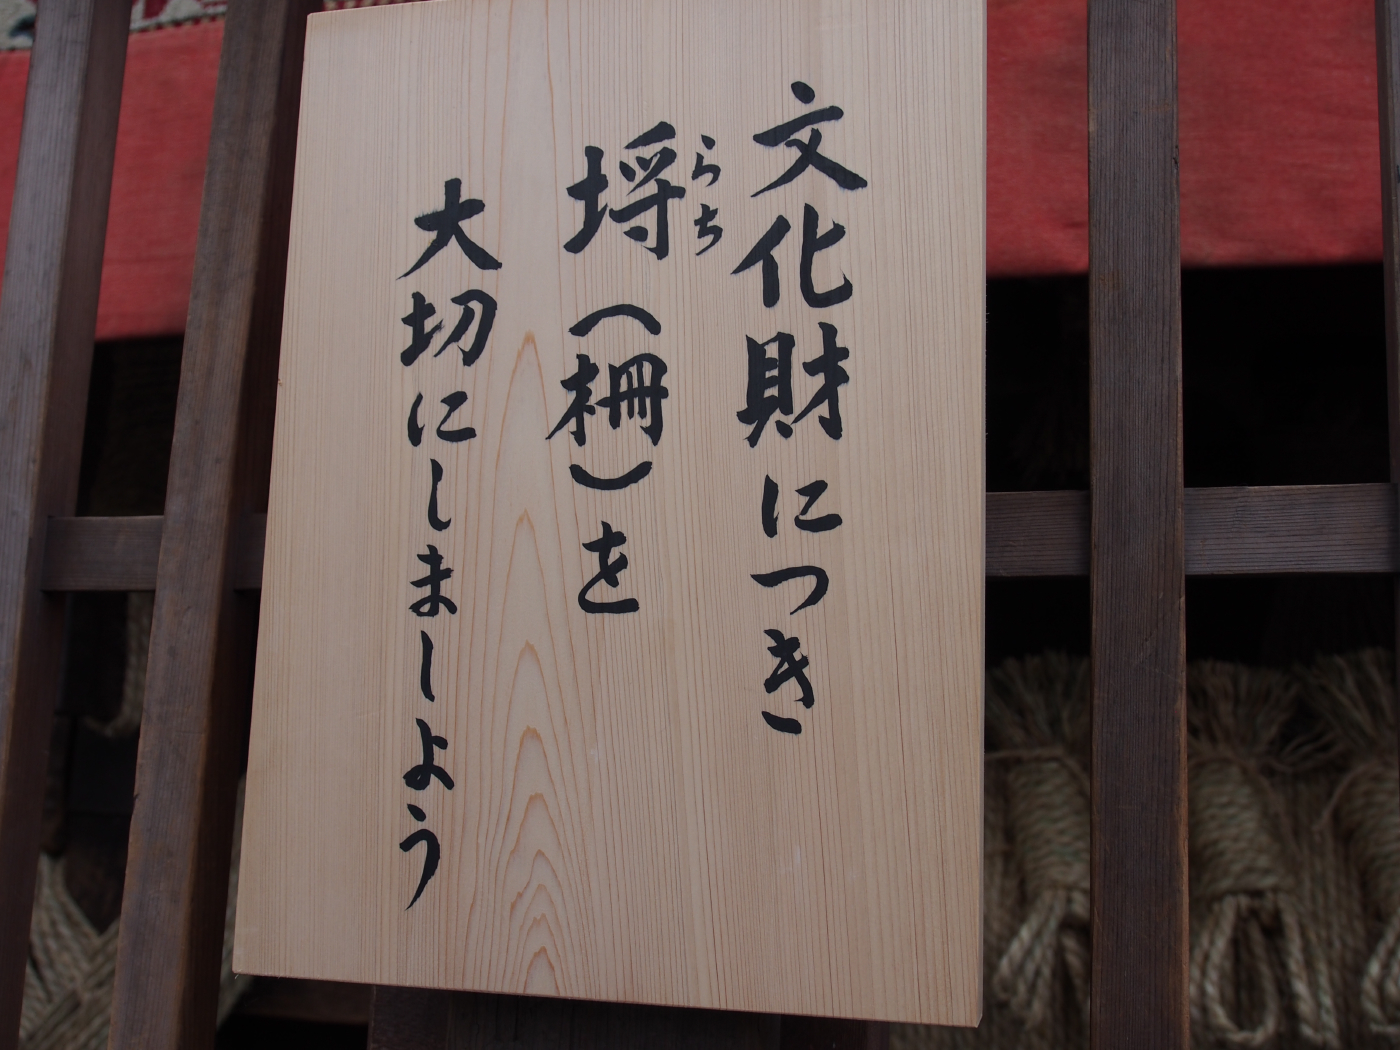 文化財につき
埒（柵）を
らち
大切にしましよう